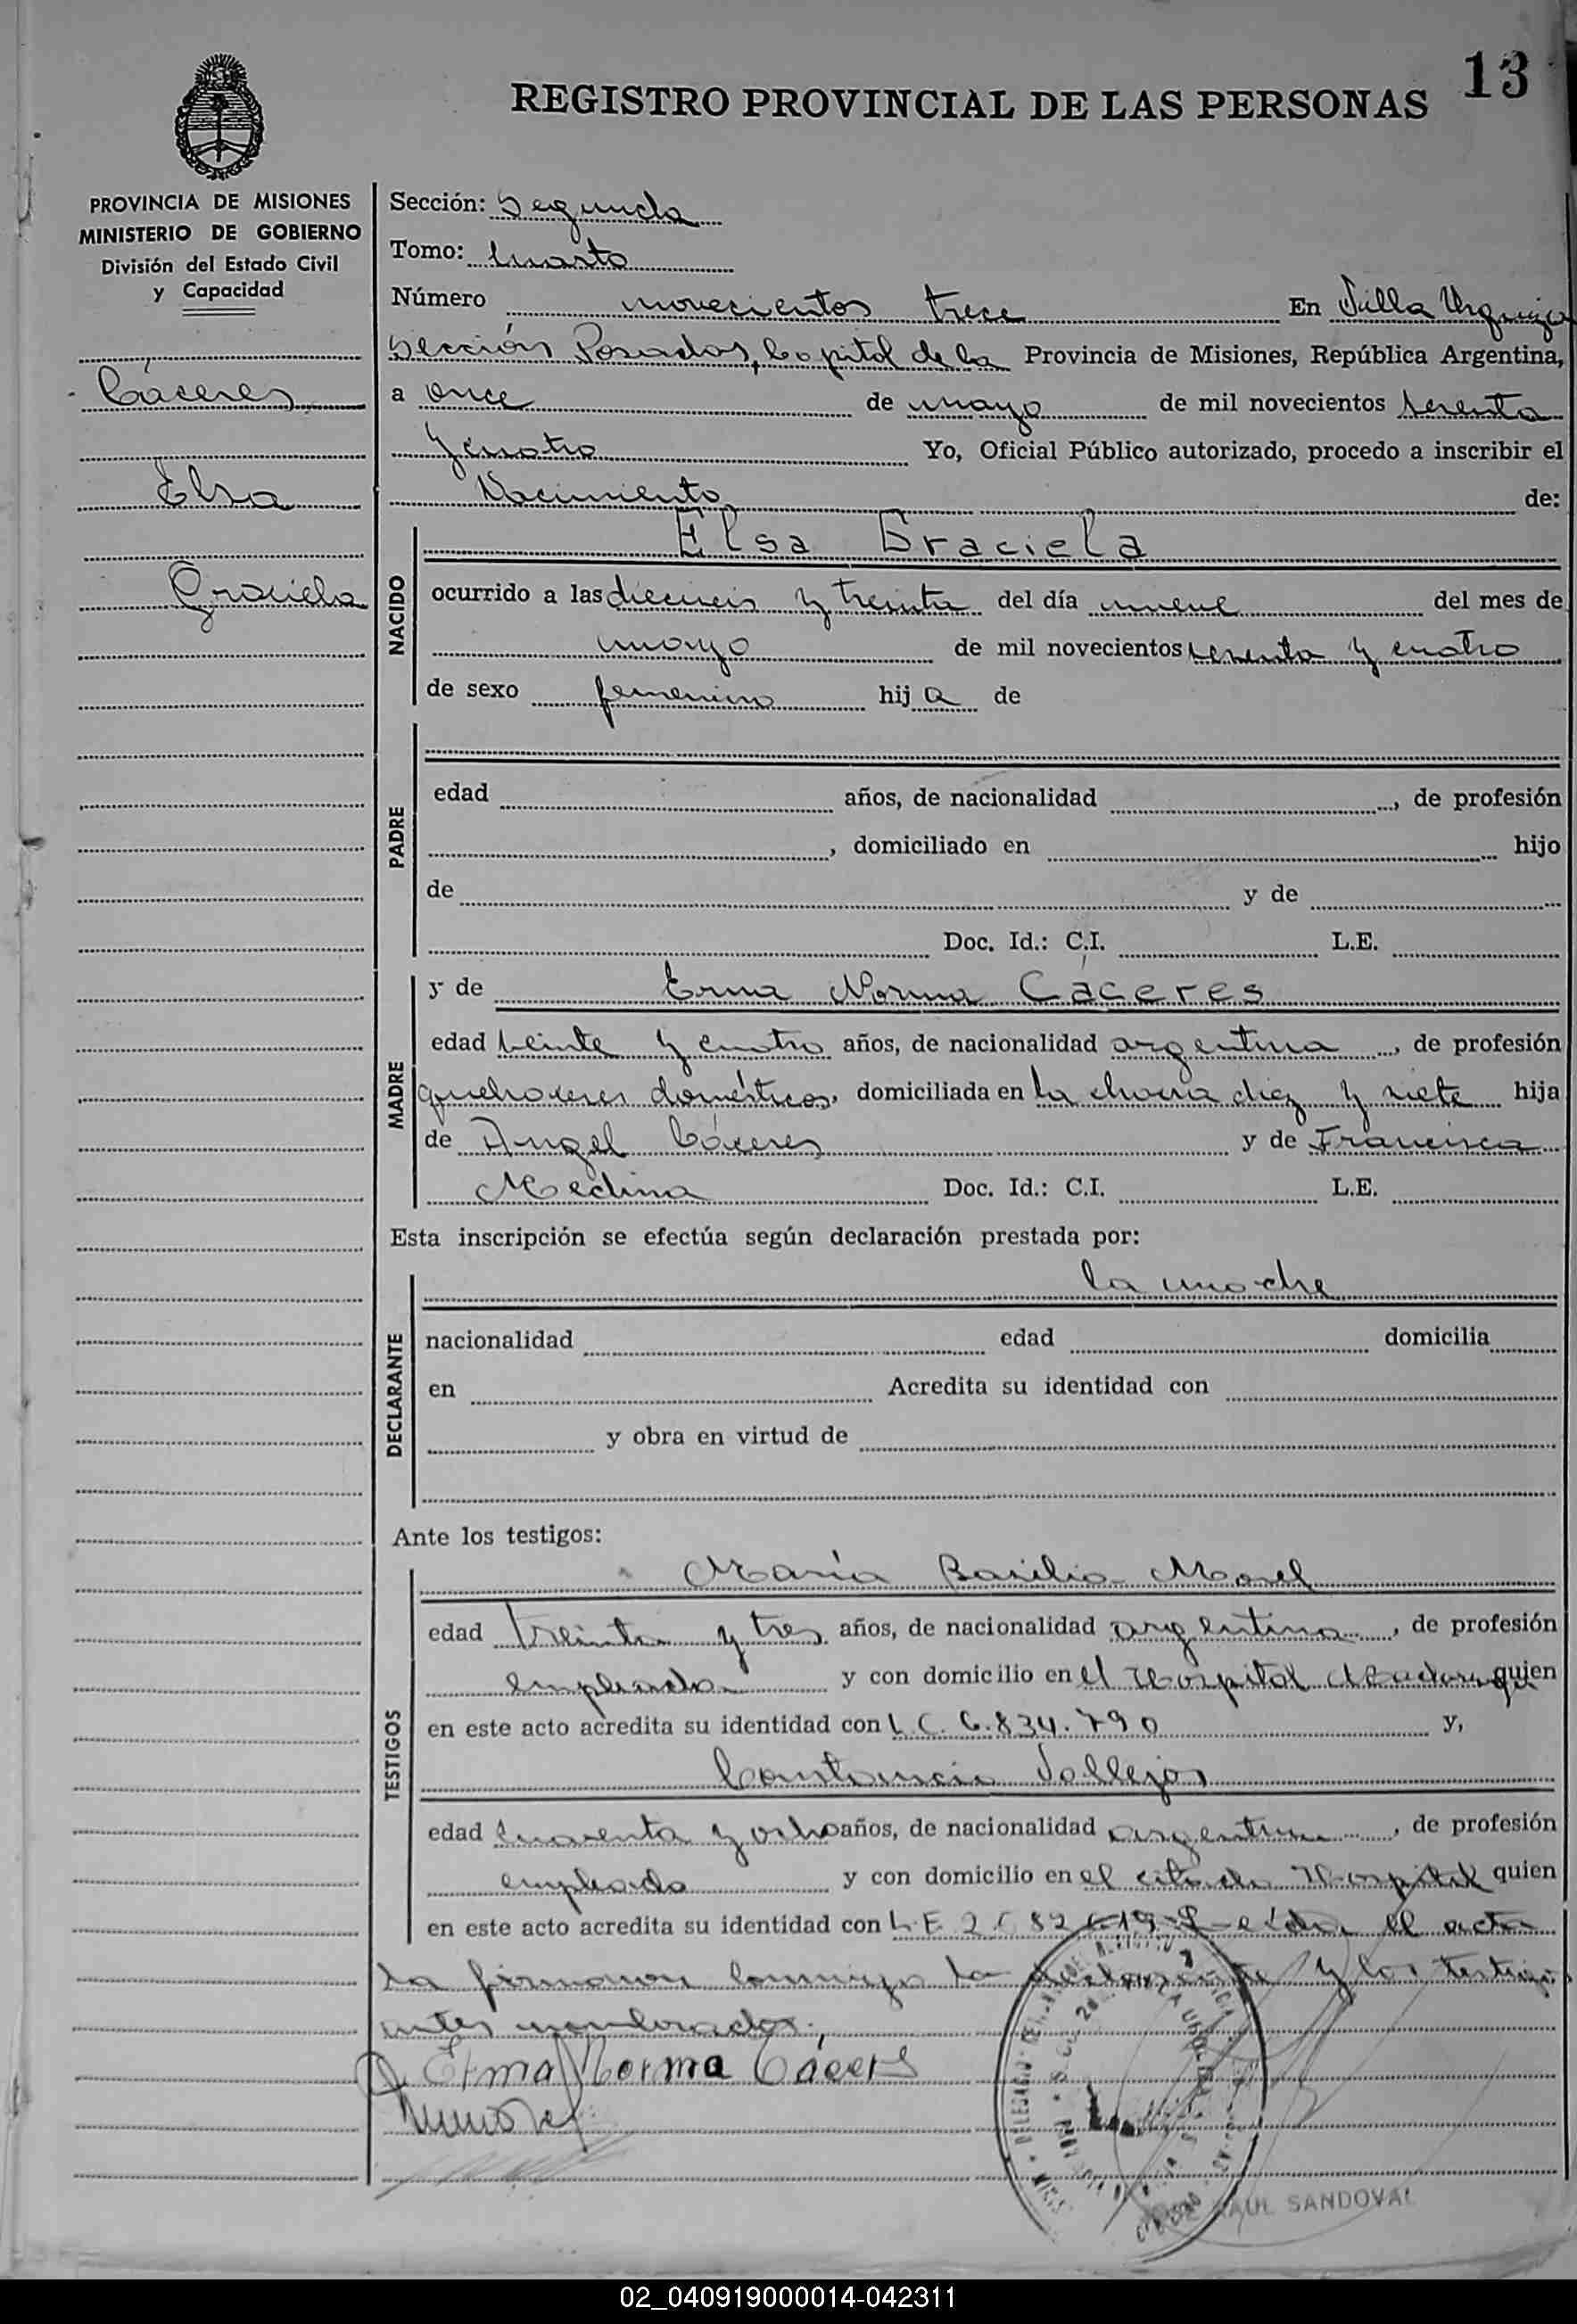 13
REGISTRO PROVINCIAL DE LAS PERSONAS
PROVINCIA DE MISIONES
MINISTERIO DE GOBIERNO
División del Estado Civil
y Capacidad
Cáceres
Elsa
Graciela
Sección: Segunda
Tomo: Cuarto
Número novecientos trece En Villa Urquiza
Sección Posadas, Capital de la Provincia de Misiones, República Argentina,
a once de mayo de mil novecientos
y cuatro Yo, Oficial Público autorizado, procedo a inscribir el
Nacimiento de:
NACIDO
Elsa Graciela
ocurrido a las dieciseis y treinta del día nueve del mes de
mayo de mil novecientos y cuatro
de sexo femenino hija de
PADRE
edad años, de nacionalidad , de profesión
, domiciliado en hijo
de y de
Doc. Id.: C.I. L.E.
MADRE
y de Erma Norma Cáceres
edad veinte y cuatro años, de nacionalidad argentina , de profesión
quehaceres domésticos, domiciliada en la chacra diez y siete hija
de Angel Cáceres y de Francisca
Medina Doc. Id.: C.I. L.E.
Esta inscripción se efectúa según declaración prestada por:
DECLARANTE
la madre
nacionalidad edad domicilia
en Acredita su identidad con
y obra en virtud de
Ante los testigos:
TESTIGOS
María Basilia Morel
edad treinta y tres años, de nacionalidad argentina , de profesión
empleada y con domicilio en el Hospital quien
en este acto acredita su identidad con L.C. 6.834.790 y,
Constancio Vallejos
edad cuarenta y ocho años, de nacionalidad argentina , de profesión
empleado y con domicilio en el citado Hospital quien
en este acto acredita su identidad con L.E. el acta
la firman conmigo la declarante y los testigos
antes nombrados.
Erma Norma Cáceres
RAUL SANDOVAL
02_040919000014-042311